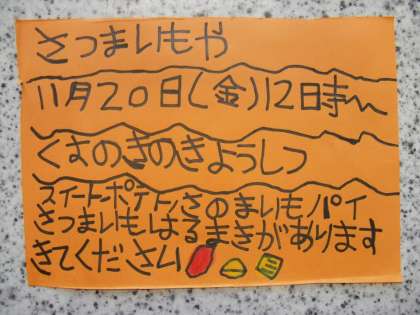 さつまいもや
11月20日(金)12時〜
くすのきのきょうしつ
スイートポテト、さつまいもパイ
さつまいもはるまきがあります
きてください